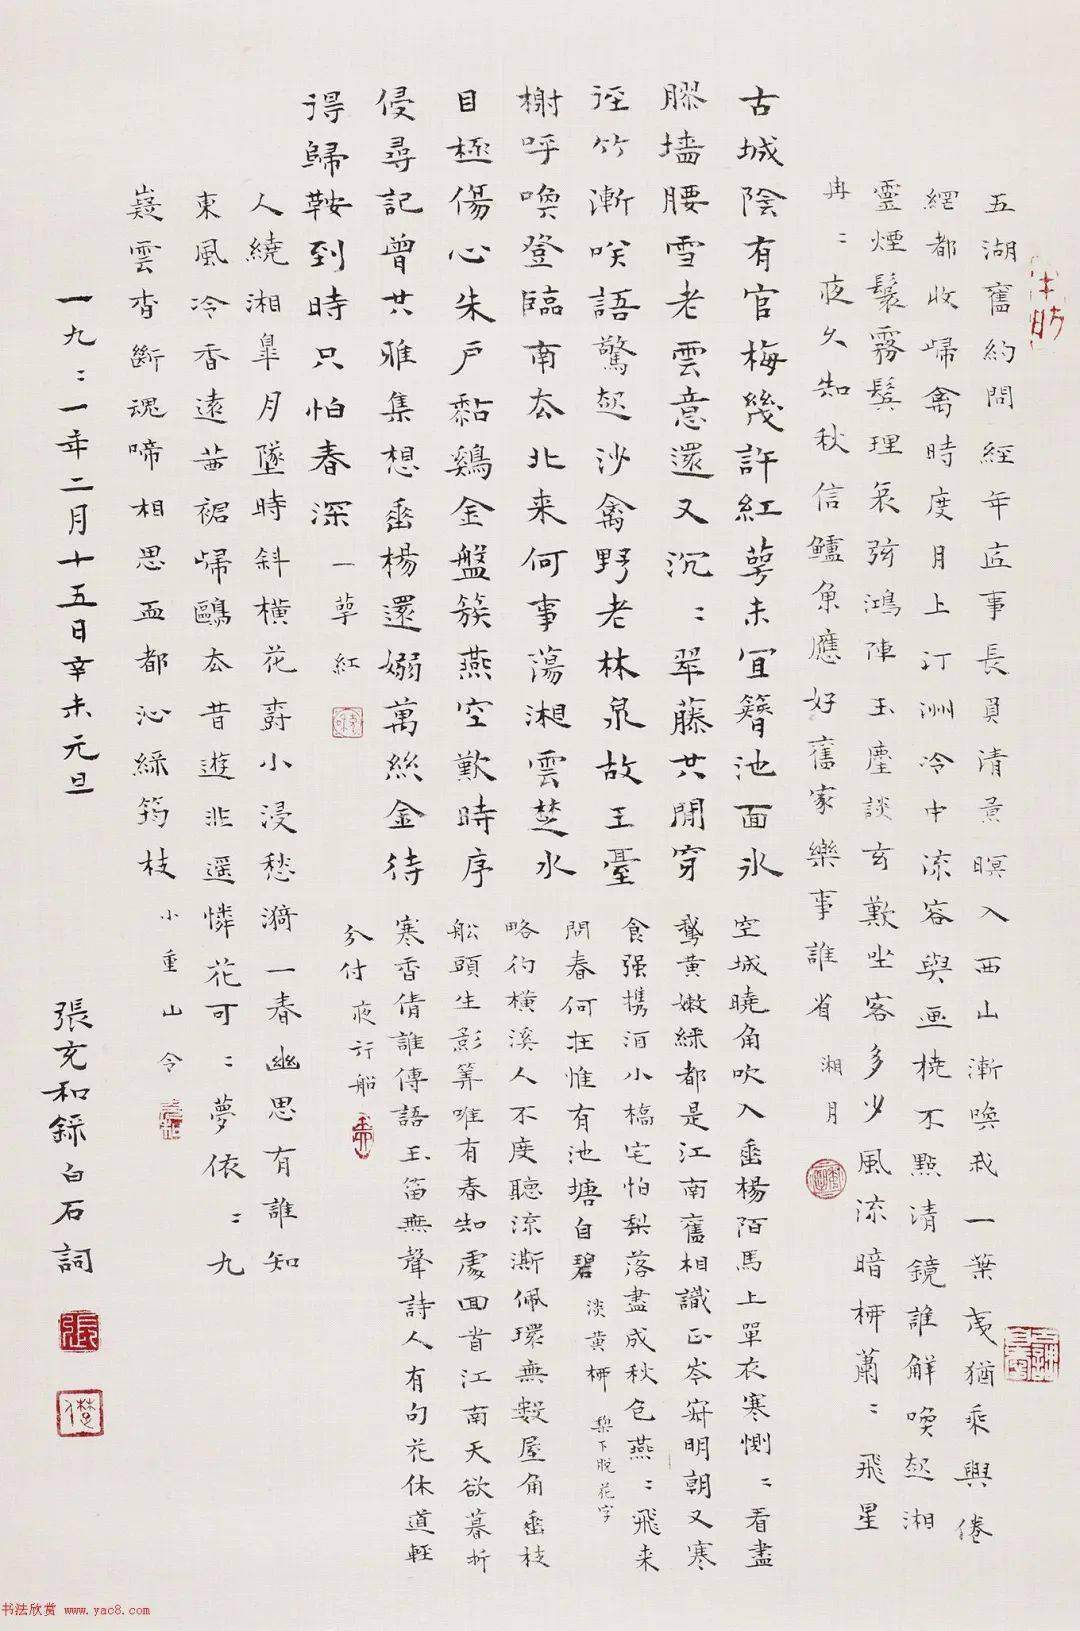 五湖舊約問經年底事長負清景暝入西山漸喚我一葉夷猶乘興倦
網都收歸禽時度月上汀洲冷中流容與画橈不點清鏡誰解喚起湘
靈煙鬟霧鬢理哀弦鴻陣玉麈談玄歎坐客多少風流暗柳蕭〻飛星
冉〻夜久知秋信鱸魚應好舊家樂事誰省 湘月
古城陰有官梅幾許紅萼未宜簪池面冰
膠墻腰雪老雲意還又沉〻翠藤共閒穿
徑竹漸笑語驚起沙禽野老林泉故王臺
榭呼喚登臨南去北来何事蕩湘雲楚水
目極傷心朱戶黏鷄金盤簇燕空歎時序
侵尋記曾共雅集想垂楊還嫋萬絲金待
得歸鞍到時只怕春深 一萼紅
空城曉角吹入垂楊陌馬上單衣寒惻〻看盡
鵞黃嫩綠都是江南舊相識正岑寂明朝又寒
食强携酒小橋宅怕梨落盡成秋色燕〻飛来
問春何在惟有池塘自碧 淡黃柳 梨下脫花字
略彴橫溪人不度聽流澌佩環無數屋角垂枝
船頭生影筭唯有春知處回首江南天欲暮折
寒香倩誰傳語玉笛無聲詩人有句花休道輕
分付 夜行船
人繞湘皐月墜時斜橫花壽小浸愁漪一春幽思有誰知
東風冷香遠茜裙歸鷗去昔遊非遥憐花可〻夢依〻九
嶷雲杳斷魂啼相思血都沁綠筠枝 小重山令
一九〻一年二月十五日辛未元旦
張充和錄白石詞
張
书法欣赏 www.yac8.com